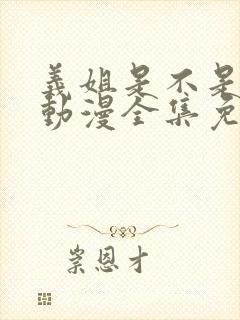 義姐是不是
動漫全集免
岽恩才